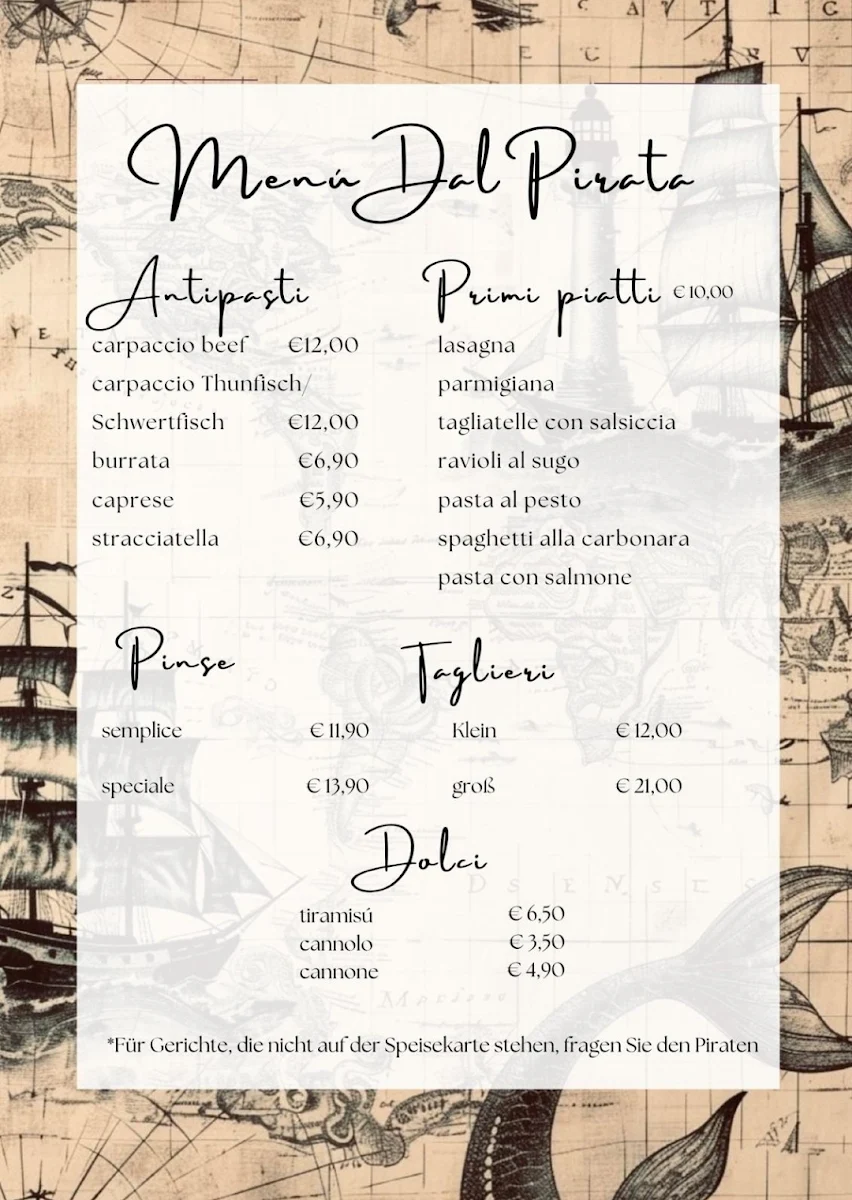 Menú Dal Pirata
Antipasti
carpaccio beef €12,00
carpaccio Thunfisch/
Schwertfisch €12,00
burrata €6,90
caprese €5,90
stracciatella €6,90
Primi piatti € 10,00
lasagna
parmigiana
tagliatelle con salsiccia
ravioli al sugo
pasta al pesto
spaghetti alla carbonara
pasta con salmone
Pinse
semplice € 11,90
speciale € 13,90
Taglieri
Klein € 12,00
groß € 21,00
Dolci
tiramisú € 6,50
cannolo € 3,50
cannone € 4,90
*Für Gerichte, die nicht auf der Speisekarte stehen, fragen Sie den Piraten